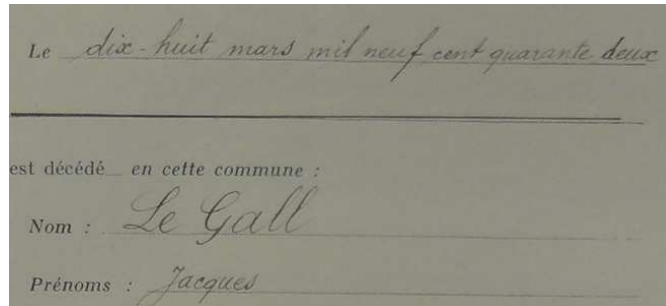 Le dix-huit mars mil neuf cent quarante deux
est décédé en cette commune :
Nom : Le Gall
Prénoms : Jacques